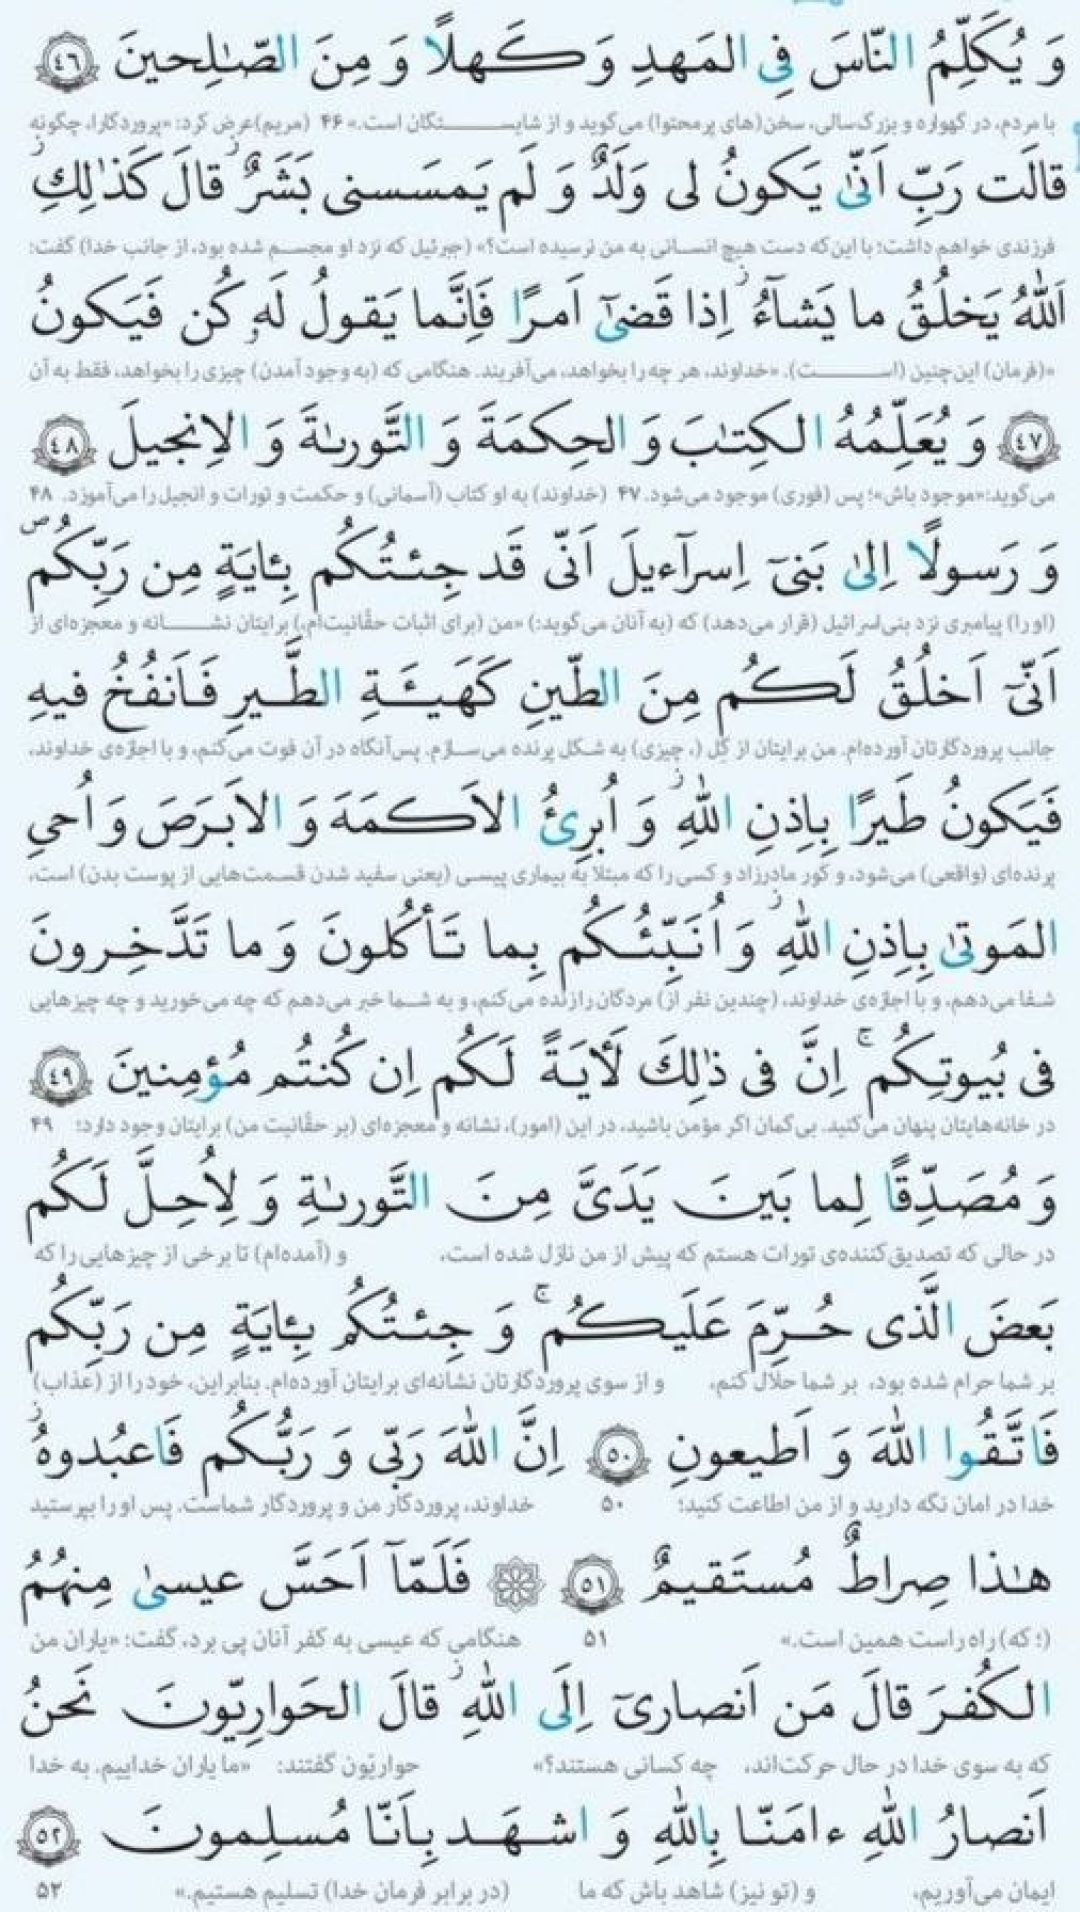 وَ یُکَلِّمُ النّاسَ فِی المَهدِ وَ کَهلًا وَ مِنَ الصّٰلِحینَ ﴿٤٦﴾
با مردم، در گهواره و بزرگ‌سالی، سخن(های پرمحتوا) می‌گوید و از شایستگان است.» ۴۶ (مریم)عرض کرد: «پروردگارا، چگونه
قالَت رَبِّ اَنّیٰ یَکونُ لی وَلَدٌ وَ لَم یَمسَسنی بَشَرٌ ز قالَ کَذٰلِکِ ز
فرزندی خواهم داشت؛ با این‌که دست هیچ انسانی به من نرسیده است؟» (جبرئیل که نزد او مجسم شده بود، از جانب خدا) گفت:
اَللّٰهُ یَخلُقُ ما یَشآءُ ز اِذا قَضیٰٓ اَمرًا فَاِنَّما یَقولُ لَهٗ کُن فَیَکونُ
«(فرمان) این‌چنین (است). «خداوند، هر چه را بخواهد، می‌آفریند. هنگامی که (به وجود آمدن) چیزی را بخواهد، فقط به آن
﴿٤٧﴾ وَ یُعَلِّمُهُ الکِتٰبَ وَ الحِکمَةَ وَ التَّورىٰةَ وَ الاِنجیلَ ﴿٤٨﴾
می‌گوید: «موجود باش»؛ پس (فوری) موجود می‌شود. ۴۷ (خداوند) به او کتاب (آسمانی) و حکمت و تورات و انجیل را می‌آموزد. ۴۸
وَ رَسولًا اِلیٰ بَنیٓ اِسرآءیلَ اَنّی قَد جِئتُکُم بِـٔایَةٍ مِن رَبِّکُم ص
(او را) پیامبری نزد بنی‌اسرائیل (قرار می‌دهد) که (به آنان می‌گوید:) «من (برای اثبات حقّانیت‌ام،) برایتان نشانه و معجزه‌ای از
اَنّیٓ اَخلُقُ لَکُم مِنَ الطّینِ کَهَیـَٔةِ الطَّیرِ فَاَنفُخُ فیهِ
جانب پروردگارتان آورده‌ام. من برایتان از گِل (، چیزی) به شکل پرنده می‌سازم. پس‌آنگاه در آن فوت می‌کنم، و با اجازه‌ی خداوند،
فَیَکونُ طَیرًا بِاِذنِ اللّٰهِ ز وَ اُبرِئُ الاَکمَهَ وَ الاَبرَصَ وَ اُحیِ
پرنده‌ای (واقعی) می‌شود، و کور مادرزاد و کسی را که مبتلا به بیماری پیسی (یعنی سفید شدن قسمت‌هایی از پوست بدن) است،
المَوتیٰ بِاِذنِ اللّٰهِ ز وَ اُنَبِّئُکُم بِما تَأکُلونَ وَ ما تَدَّخِرونَ
شفا می‌دهم، و با اجازه‌ی خداوند، (چندین نفر از) مردگان را زنده می‌کنم، و به شما خبر می‌دهم که چه می‌خورید و چه چیزهایی
فی بُیوتِکُم ج اِنَّ فی ذٰلِکَ لَأٓیَةً لَکُم اِن کُنتُم مُؤمِنینَ ﴿٤٩﴾
در خانه‌هایتان پنهان می‌کنید. بی‌گمان اگر مؤمن باشید، در این (امور)، نشانه و معجزه‌ای (بر حقّانیت من) برایتان وجود دارد؛ ۴۹
وَ مُصَدِّقًا لِما بَینَ یَدَیَّ مِنَ التَّورىٰةِ وَ لِاُحِلَّ لَکُم
در حالی که تصدیق‌کننده‌ی تورات هستم که پیش از من نازل شده است، و (آمده‌ام) تا برخی از چیزهایی را که
بَعضَ الَّذی حُرِّمَ عَلَیکُم ج وَ جِئتُکُم بِـٔایَةٍ مِن رَبِّکُم
بر شما حرام شده بود، بر شما حلال کنم، و از سوی پروردگارتان نشانه‌ای برایتان آورده‌ام. بنابراین، خود را از (عذاب)
فَاتَّقُوا اللّٰهَ وَ اَطیعونِ ﴿٥٠﴾ اِنَّ اللّٰهَ رَبّی وَ رَبُّکُم فَاعبُدوهُ ز
خدا در امان نگه دارید و از من اطاعت کنید؛ ۵۰ خداوند، پروردگار من و پروردگار شماست. پس او را بپرستید
هٰذا صِراطٌ مُستَقیمٌ ﴿٥١﴾ فَلَمّآ اَحَسَّ عیسیٰ مِنهُمُ
(؛ که) راه راست همین است.» ۵۱ هنگامی که عیسی به کفر آنان پی برد، گفت: «یاران من
الکُفرَ قالَ مَن اَنصاریٓ اِلَی اللّٰهِ ز قالَ الحَوارِیّونَ نَحنُ
که به سوی خدا در حال حرکت‌اند، چه کسانی هستند؟» حواریّون گفتند: «ما یاران خداییم. به خدا
اَنصارُ اللّٰهِ ءامَنّا بِاللّٰهِ وَ اشهَد بِاَنّا مُسلِمونَ ﴿٥٢﴾
ایمان می‌آوریم، و (تو نیز) شاهد باش که ما (در برابر فرمان خدا) تسلیم هستیم.» ۵۲